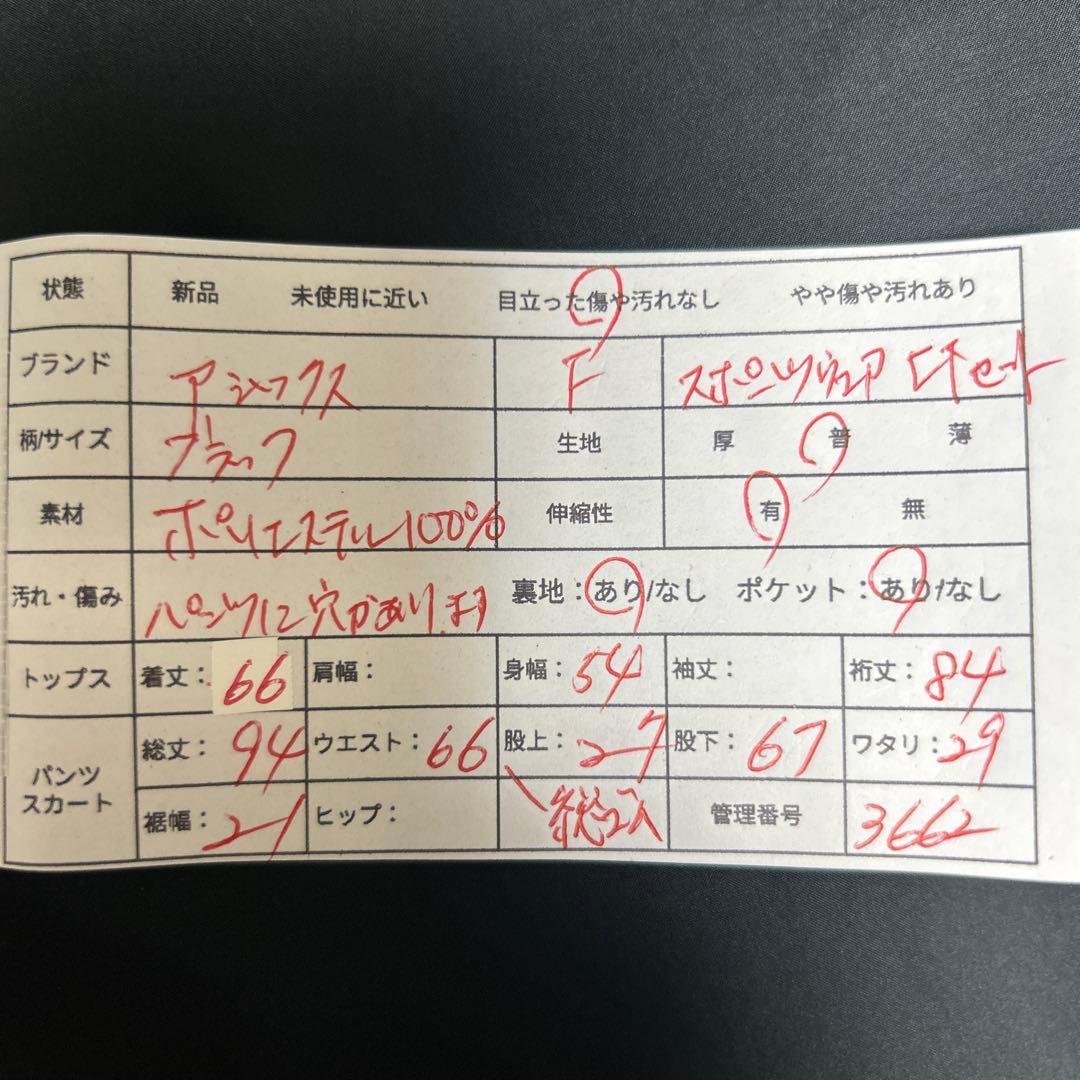 状態 新品 未使用に近い 目立った傷や汚れなし やや傷や汚れあり
ブランド アシックス F スポーツウェア 上下セット
柄/サイズ ブラック 生地 厚 普 薄
素材 ポリエステル100% 伸縮性 有 無
汚れ・傷み パンツに穴があります 裏地：あり/なし ポケット：あり/なし
トップス 着丈：66 肩幅： 身幅：54 袖丈： 裄丈：84
パンツ スカート 総丈：94 ウエスト：66 股上：27 股下：67 ワタリ：29
裾幅：21 ヒップ： 管理番号 3662